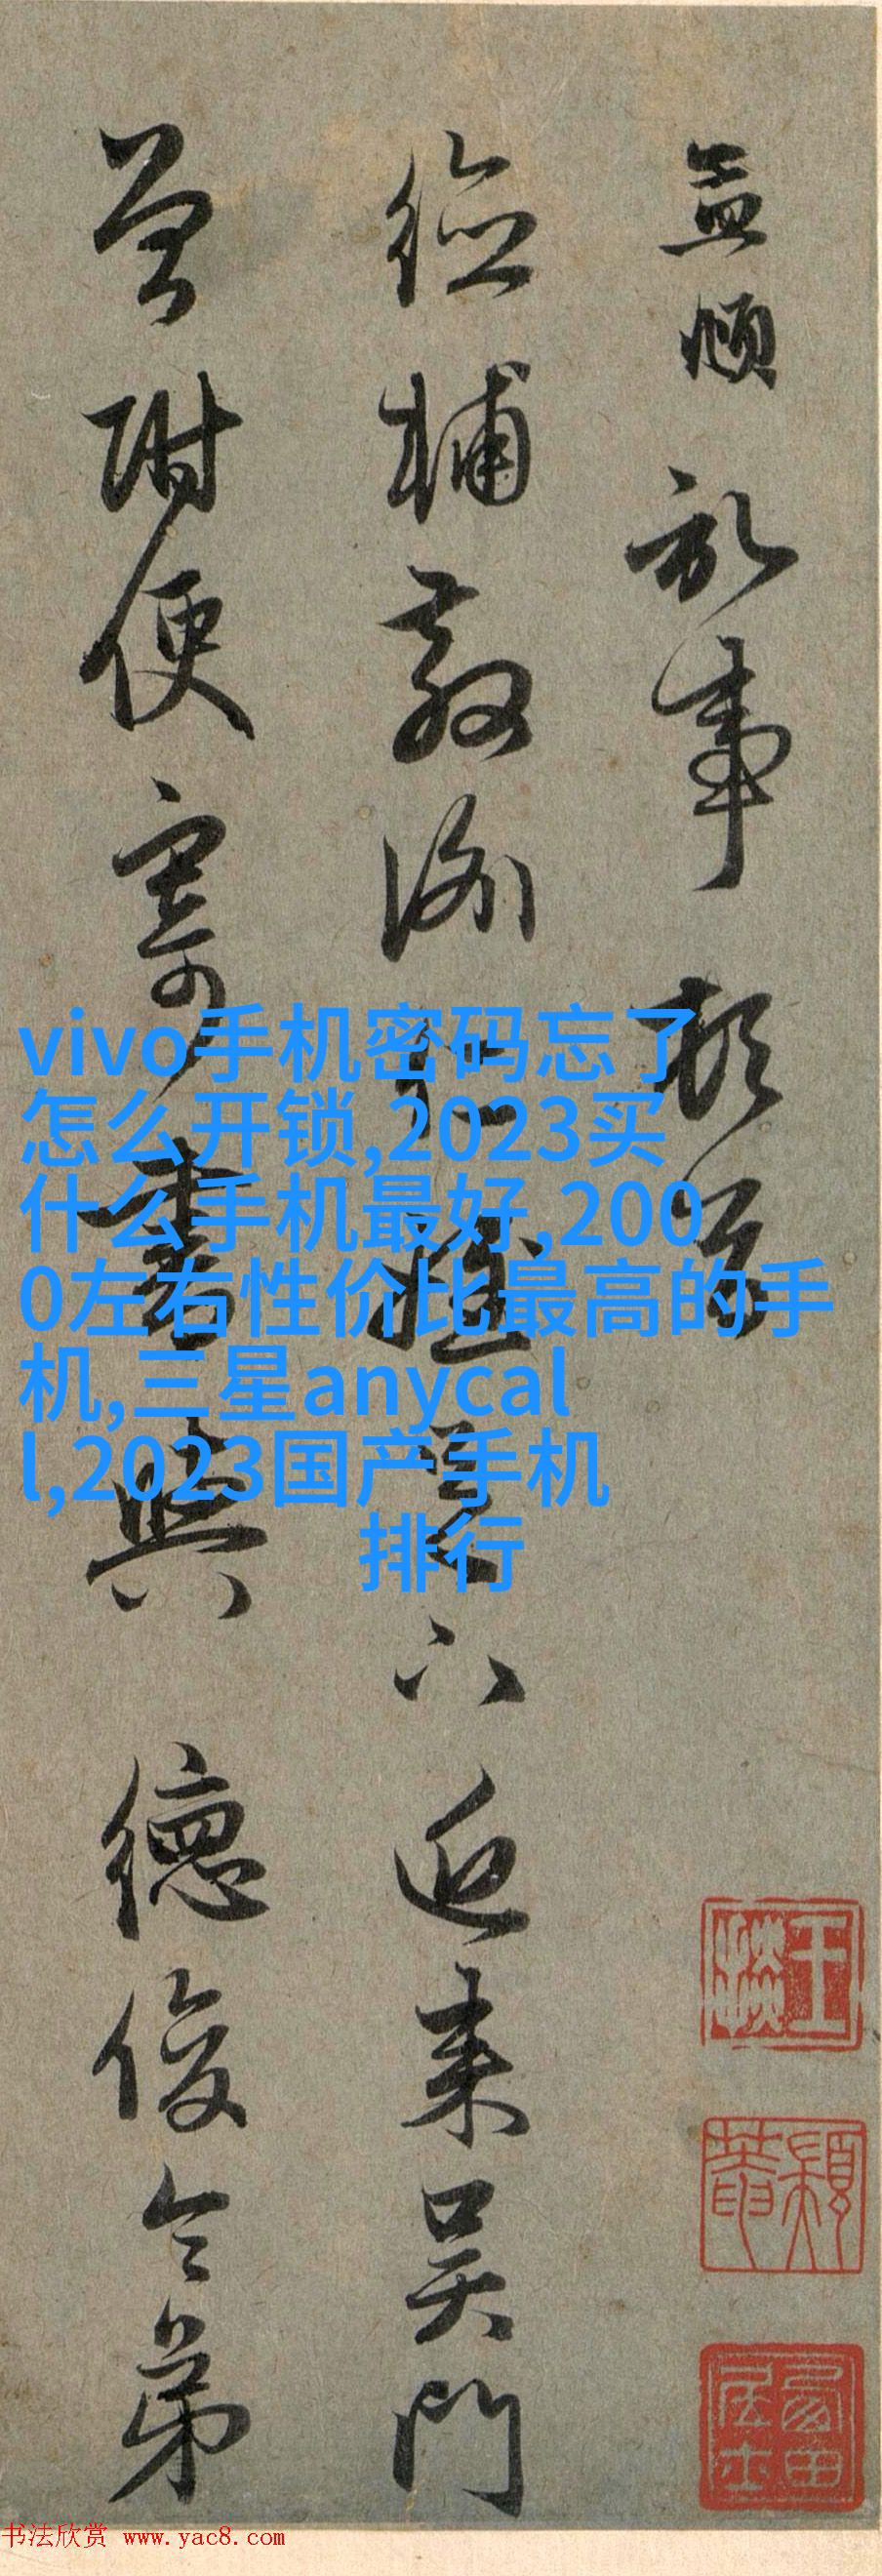 孟頫 記事 頓首
德輔教諭仁姪足下近来吴門
曾附便寄書與 德俊令弟
vivo手机密码忘了
怎么开锁,2023买
什么手机最好,200
0左右性价比最高的手
机,三星anycal
l,2023国产手机
排行
书法欣赏 www.yac8.com